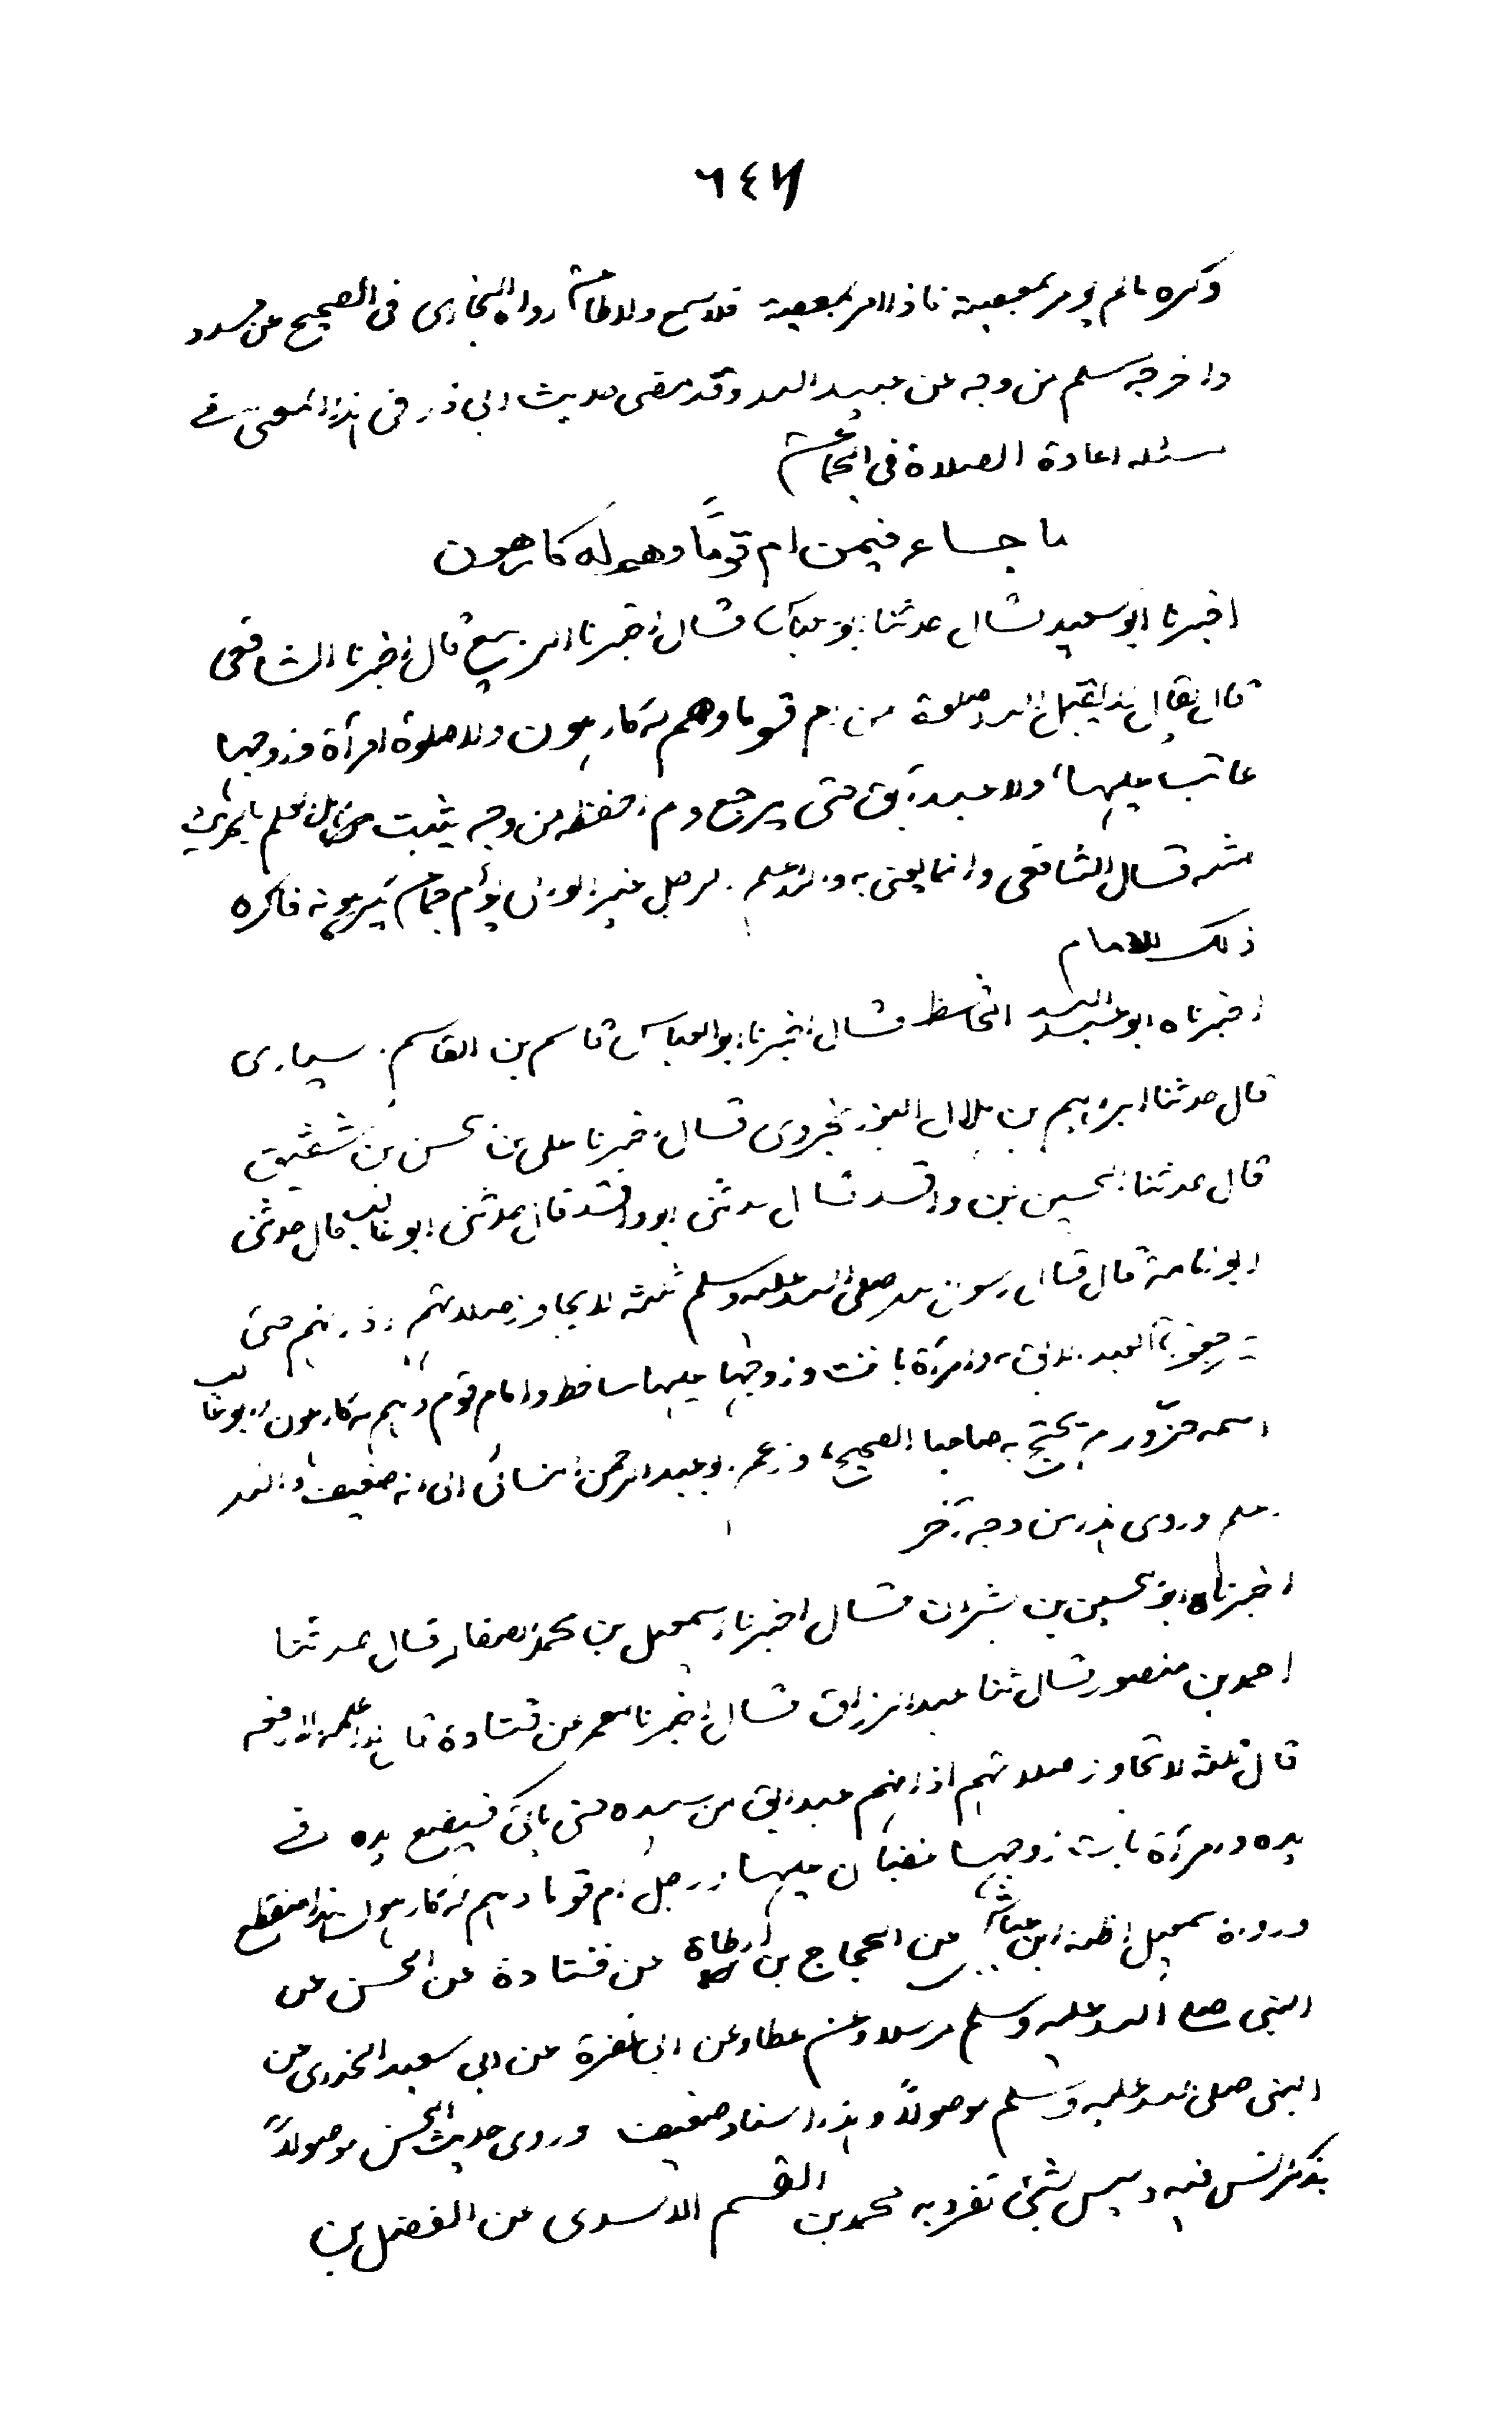 ٦٤٧
وكره ما لم يومر بمعصية فاذا امر بمعصية فلا سمع ولا طاعة رواه البخارى فى الصحيح عن مسدد
واخرجه مسلم من وجه عن عبيد الله وقد مضى حديث ابى ذر فى هذا المعنى فى
مسئله اعادة الصلاة فى الجماعة
ما جاء فيمن ام قومًا وهم له كارهون
اخبرنا ابو سعيد قال حدثنا ابو العباس قال اخبرنا الربيع قال اخبرنا الشافعى
قال يقال لا يقبل الله صلوة من ام قوما وهم له كارهون ولا صلوة امرأة وزوجها
عاتب عليها ولا عبد آبق حتى يرجع ولم احفظ من وجه يثبت اهل العلم بالحديث
مثله قال الشافعى وانما يعنى به والله اعلم الرجل غير الوالى يؤم جماعة يكرهونه فاكره
ذلك للامام
اخبرناه ابو عبد الله الحافظ قال اخبرنا ابو العباس قاسم بن القاسم السيارى
قال حدثنا ابراهيم بن هلال البوزنجردى قال اخبرنا على بن الحسن بن شقيق
قال حدثنا الحسين بن واقد قال حدثنى ابو واقد قال حدثنى ابو غالب قال حدثنى
ابو امامة قال قال رسول الله صلى الله عليه وسلم ثلثة لا يجاوز صلاتهم اذانهم حتى
يرجعوا العبد الابق وامرأة باتت وزوجها عليها ساخط وامام قوم وهم له كارهون ابو غالب
اسمه حزّور لم يحتج به صاحبا الصحيح وزعم ابو عبد الرحمن النسائى انه ضعيف والله
اعلم وروى هذا من وجه آخر
اخبرناه ابو الحسين بن بشران قال اخبرنا اسمعيل بن محمد الصفار قال حدثنا
احمد بن منصور قال ثنا عبد الرزاق قال اخبرنا معمر عن قتادة قال لا اعلمه الا رفعه
قال ثلثة لا تجاوز صلاتهم اذانهم عبد ابق من سيده حتى ياتى فيضع يده فى
يده وامرأة باتت زوجها غضبان عليها ورجل ام قوما وهم له كارهون هذا منقطع
ورواه اسمعيل اظنه ابن عياش عن الحجاج بن ارطاة عن قتادة عن الحسن عن
النبى صلى الله عليه وسلم مرسلا وعن عطاء عن ابى نضرة عن ابى سعيد الخدرى عن
النبى صلى الله عليه وسلم موصولاً وهذا اسناد ضعيف وروى حديث الحسن موصولاً
بذكر انس فيه وليس بشئ تفرد به محمد بن القسم الاسدى عن الفضل بن